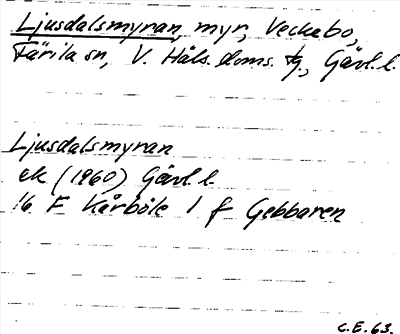 Ljusdalsmyran, myr, Veckebo,
Färila sn, V. Häls. doms. tg., Gävl. l.
Ljusdalsmyran
ek (1960) Gävl. l.
16 F Kårböle 1 f Gebbaren
C.E. 63.